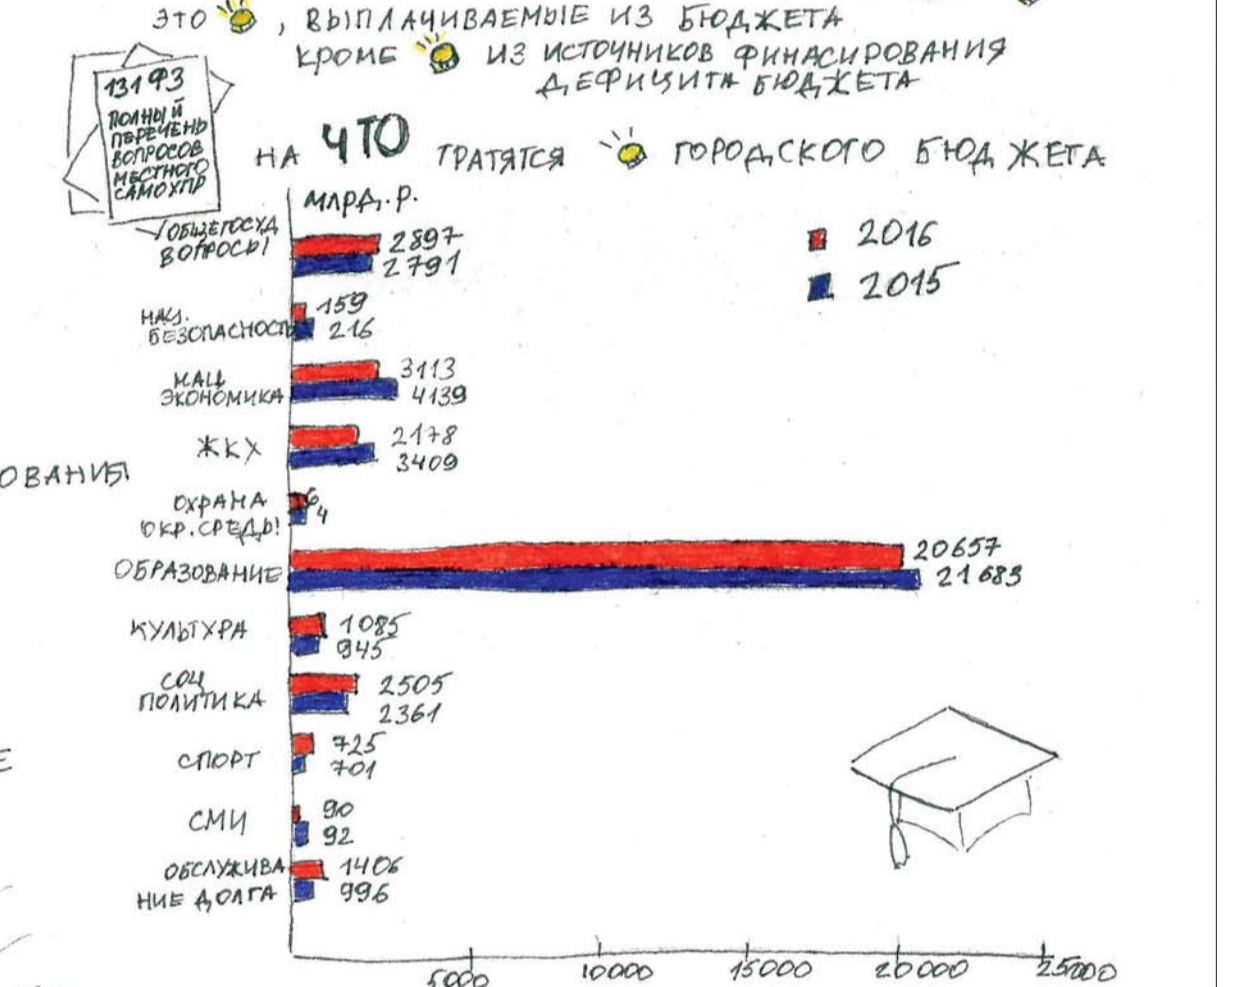 ЭТО , ВЫПЛАЧИВАЕМЫЕ ИЗ БЮДЖЕТА
КРОМЕ ИЗ ИСТОЧНИКОВ ФИНАСИРОВАНИЯ
ДЕФИЦИТА БЮДЖЕТА
131 ФЗ
ПОЛНЫЙ
ПЕРЕЧЕНЬ
ВОПРОСОВ
МЕСТНОГО
САМОУПР
НА ЧТО ТРАТЯТСЯ ГОРОДСКОГО БЮДЖЕТА
МЛРД. Р.
2016
2015
ОБЩЕГОСУД
ВОПРОСЫ
2897
2791
НАЦ.
БЕЗОПАСНОСТЬ
159
216
НАЦ
ЭКОНОМИКА
3113
4139
ЖКХ
2178
3409
ОВАНИЯ
ОХРАНА
ОКР. СРЕДЫ
6
4
ОБРАЗОВАНИЕ
20657
21683
КУЛЬТУРА
1085
945
СОЦ
ПОЛИТИКА
2505
2361
Е
СПОРТ
725
701
СМИ
90
92
ОБСЛУЖИВА
НИЕ ДОЛГА
1406
996
5000 10000 15000 20000 25000